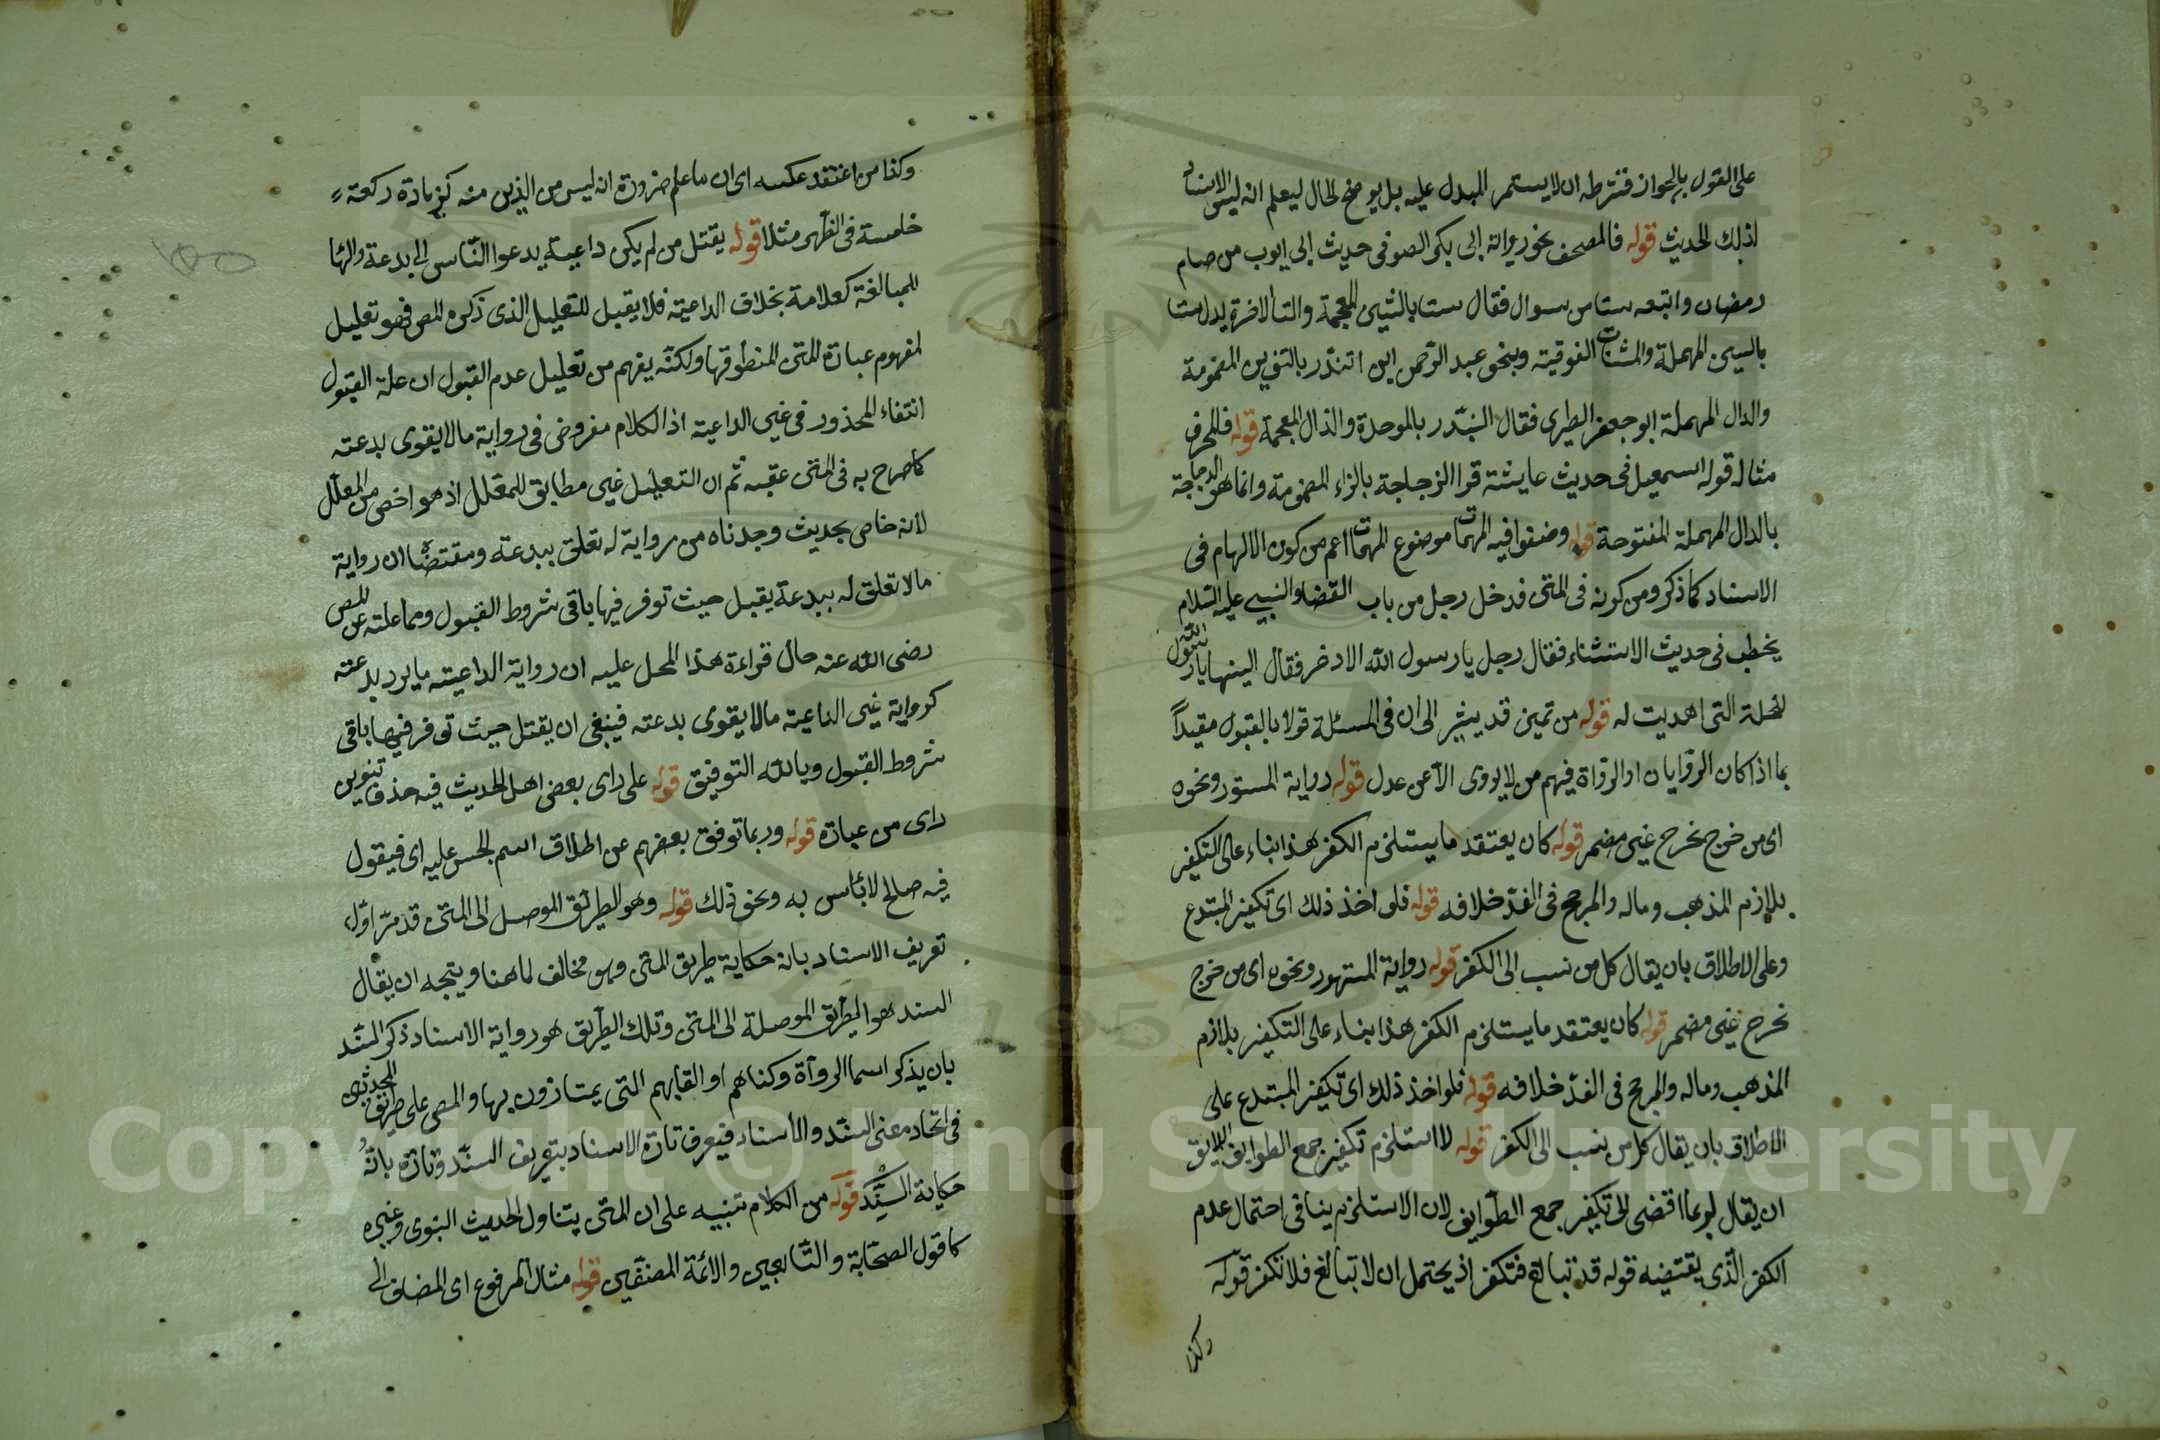 على القول بالجواز فشرطه ان لا يستمر المبدل عليه بل يوضح الحال ليعلم انه ليس الاسناد
لذلك الحديث قوله فالمصحف نحو رواية ابى بكر الصوفى حديث ابى ايوب من صام
رمضان واتبعه ستا من سوال فقال ستا بالشين المعجمة والتا لاخره بدل ستا
بالسين المهملة والمثنات الفوقية وبنحو عبد الرحمن ابن اتندر بالتنوين المضمومة
والدال المهملة ابو جعفر الطبرى فقال البذر بالموحدة والذال المعجمة قوله فالمحرف
مثاله قوله اسمعيل فى حديث عايشة قرا الزجاجة بالزاء المضمومة وانما هو الدجاجة
بالدال المهملة المفتوحة قوله وصنفوا فيه المهمات موضوع المهمات اعم من كون الابهام فى
الاسناد كما ذكر ومن كونه فى المتن فدخل رجل من باب القضا والنبى عليه السلام
يخطب فى حديث الاستثناء فقال رجل يا رسول الله الادخر فقال يا رسول الله
لخلة التى اهديت له قوله من تميز قد يشير الى ان فى المسئلة قولا بالقبول مقيداً
بما اذا كان الروايان او الرواة فيهم من لا يروى الا عن عدل قوله رواية المستور ونحوه
اى من خرج بجرح غير مضمر قوله كان يعتقد ما يستلزم الكفر هذا بناء على التكفير
بلازم المذهب وماله والمرجح فى الفذ خلافه قوله فلو اخذ ذلك اى تكفير المبتدع
وعلى الاطلاق بان يقال كل من نسب الى الكفر قوله رواية المشهور ونحوه اى من خرج
بجرح غير مضمر قوله كان يعتقد ما يستلزم الكفر هذا بناء على التكفير بلازم
المذهب وماله والمرجح فى الفذ خلافه قوله فلو اخذ ذلك اى تكفير المبتدع على
الاطلاق بان يقال كل من ينسب الى الكفر قوله لا استلزم تكفير جمع الطوايف اللايق
ان يقال لربما اقتضى الى تكفير جمع الطوايف لان الاستلزم ينافى احتمال عدم
الكفر الذى يقتضيه قوله قد تبالغ فتكفر اذ يحتمل ان لا تبالغ فلا تكفر قوله
وكذا
وكذا من اعتقد عكسه اى ان ما علم ضرورة انه ليس من الدين منه كزيادة ركعة
خامسة فى الظهر مثلا قوله يقتل من لم يكن داعية يدعوا الناس الى بدعة والها
للمبالغة كعلامة بخلاف الداعية فلا يقبل للتعليل الذى ذكره المص فهو تعليل
لمفهوم عبارة المتن المنطوقها ولكنه يفهم من تعليل عدم القبول ان علة القبول
انتفاء المحذور فى غير الداعية اذ الكلام مفروض فى رواية ما لا يقوى بدعته
كما صرح به فى المتن عقبه ثم ان التعليل غير مطابق للمعلل اذ هو اخص من المعلل
لانه خاص بحديث وجدناه من رواية له تعلق ببدعته ومقتضاه ان رواية
ما لا تعلق له ببدعة يقبل حيث توفر فيها باقى شروط القبول ومما علته عن المص
رضى الله عنه حال قراءة هذا المحل عليه ان رواية الداعية ما يرد بدعته
كرواية غير الداعية ما لا يقوى بدعته فينبغى ان يقتل حيث توفر فيها باقى
شروط القبول وبالله التوفيق قوله على راى بعض اهل الحديث فيه حذف تنوين
راى من عبارة قوله وربما توقف بعضهم عن اطلاق اسم الحسن عليه اى فيقول
فيه صالح لا بأس به ونحو ذلك قوله وهو الطريق الموصل الى المتن قد مر اول
تعريف الاسناد بانه حكاية طريق المتن وهو مخالف لما هنا ويتجه ان يقال
السند هو الطريق الموصلة الى المتن وتلك الطريق هو رواية الاسناد ذكر السند
بان يذكر اسما الرواة وكناهم او القابهم التى يمتازون بها والمص على طريق المحدثين
فى اتحاد معنى السند والاسناد فيعرف تارة الاسناد بتعريف السند وتارة بانه
حكاية السند قوله من الكلام تنبيه على ان المتن يتناول الحديث النبوى وغيره
كما قول الصحابة والتابعين والائمة المصنفين قوله مثال المرفوع اى المضاف الى